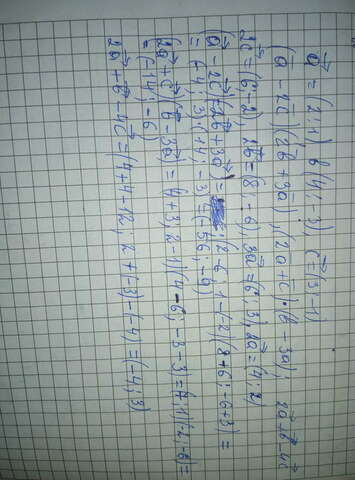 a⃗ = (2; 1) b (4; -3) c⃗ = (3; -1)
(a⃗ - 2c⃗)(2b⃗ + 3a⃗), (2a + c⃗)·(b - 3a); 2a⃗+b⃗-4c⃗
2c⃗ = (6; -2), 2b⃗ = (8; -6), 3a⃗ = (6; 3), 2a⃗ = (4; 2)
(a⃗ - 2c⃗)(2b⃗ + 3a⃗) = (2 - 6; 1 - (-2))(8+6; -6+3) =
= (-4; 3)·(14; -3) = (-56; -9)
(2a⃗ + c⃗)(b⃗ - 3a⃗) = (4+3; 2-1)(4-6; -3-3) = (7; 1)(-2; -6) =
= (-14; -6)
2a⃗ + b⃗ - 4c⃗ = (4+4-12; 2+(-3)-(-4)) = (-4; 3)